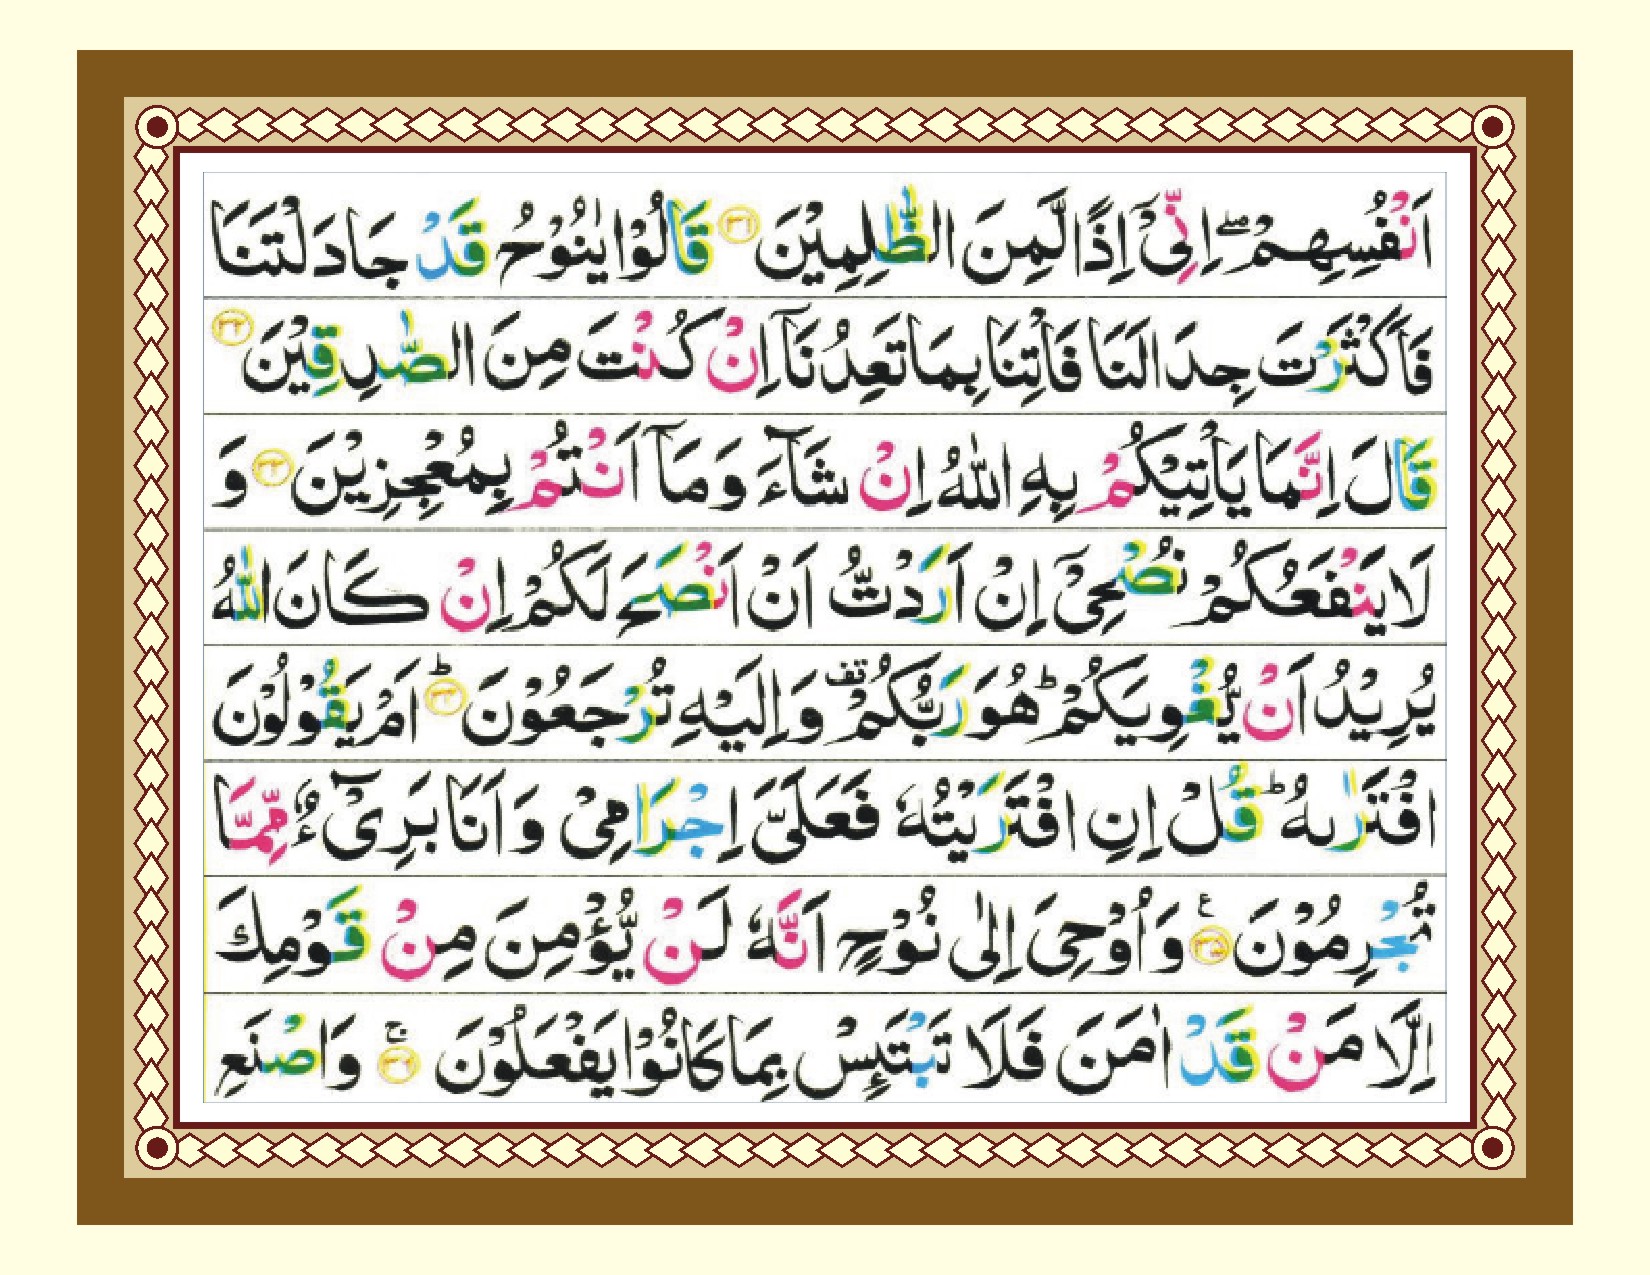 اَنْفُسِهِمْ ۖۚ اِنِّیْۤ اِذًا لَّمِنَ الظّٰلِمِیْنَ ﴿۳۱﴾ قَالُوْا یٰنُوْحُ قَدْ جَادَلْتَنَا
فَاَكْثَرْتَ جِدَالَنَا فَاْتِنَا بِمَا تَعِدُنَاۤ اِنْ كُنْتَ مِنَ الصّٰدِقِیْنَ ﴿۳۲﴾
قَالَ اِنَّمَا یَاْتِیْكُمْ بِهِ اللّٰهُ اِنْ شَآءَ وَمَاۤ اَنْتُمْ بِمُعْجِزِیْنَ ﴿۳۳﴾ وَ
لَا یَنْفَعُكُمْ نُصْحِیْۤ اِنْ اَرَدْتُّ اَنْ اَنْصَحَ لَكُمْ اِنْ كَانَ اللّٰهُ
یُرِیْدُ اَنْ یُّغْوِیَكُمْ ؕ هُوَ رَبُّكُمْ قف وَاِلَیْهِ تُرْجَعُوْنَ ﴿۳۴﴾ ؕ اَمْ یَقُوْلُوْنَ
افْتَرٰىهُ ؕ قُلْ اِنِ افْتَرَیْتُهٗ فَعَلَیَّ اِجْرَامِیْ وَاَنَا بَرِیْٓءٌ مِّمَّا
تُجْرِمُوْنَ ﴿۳۵﴾ ع وَاُوْحِیَ اِلٰی نُوْحٍ اَنَّهٗ لَنْ یُّؤْمِنَ مِنْ قَوْمِكَ
اِلَّا مَنْ قَدْ اٰمَنَ فَلَا تَبْتَىِٕسْ بِمَا كَانُوْا یَفْعَلُوْنَ ﴿۳۶﴾ ۚ وَاصْنَعِ